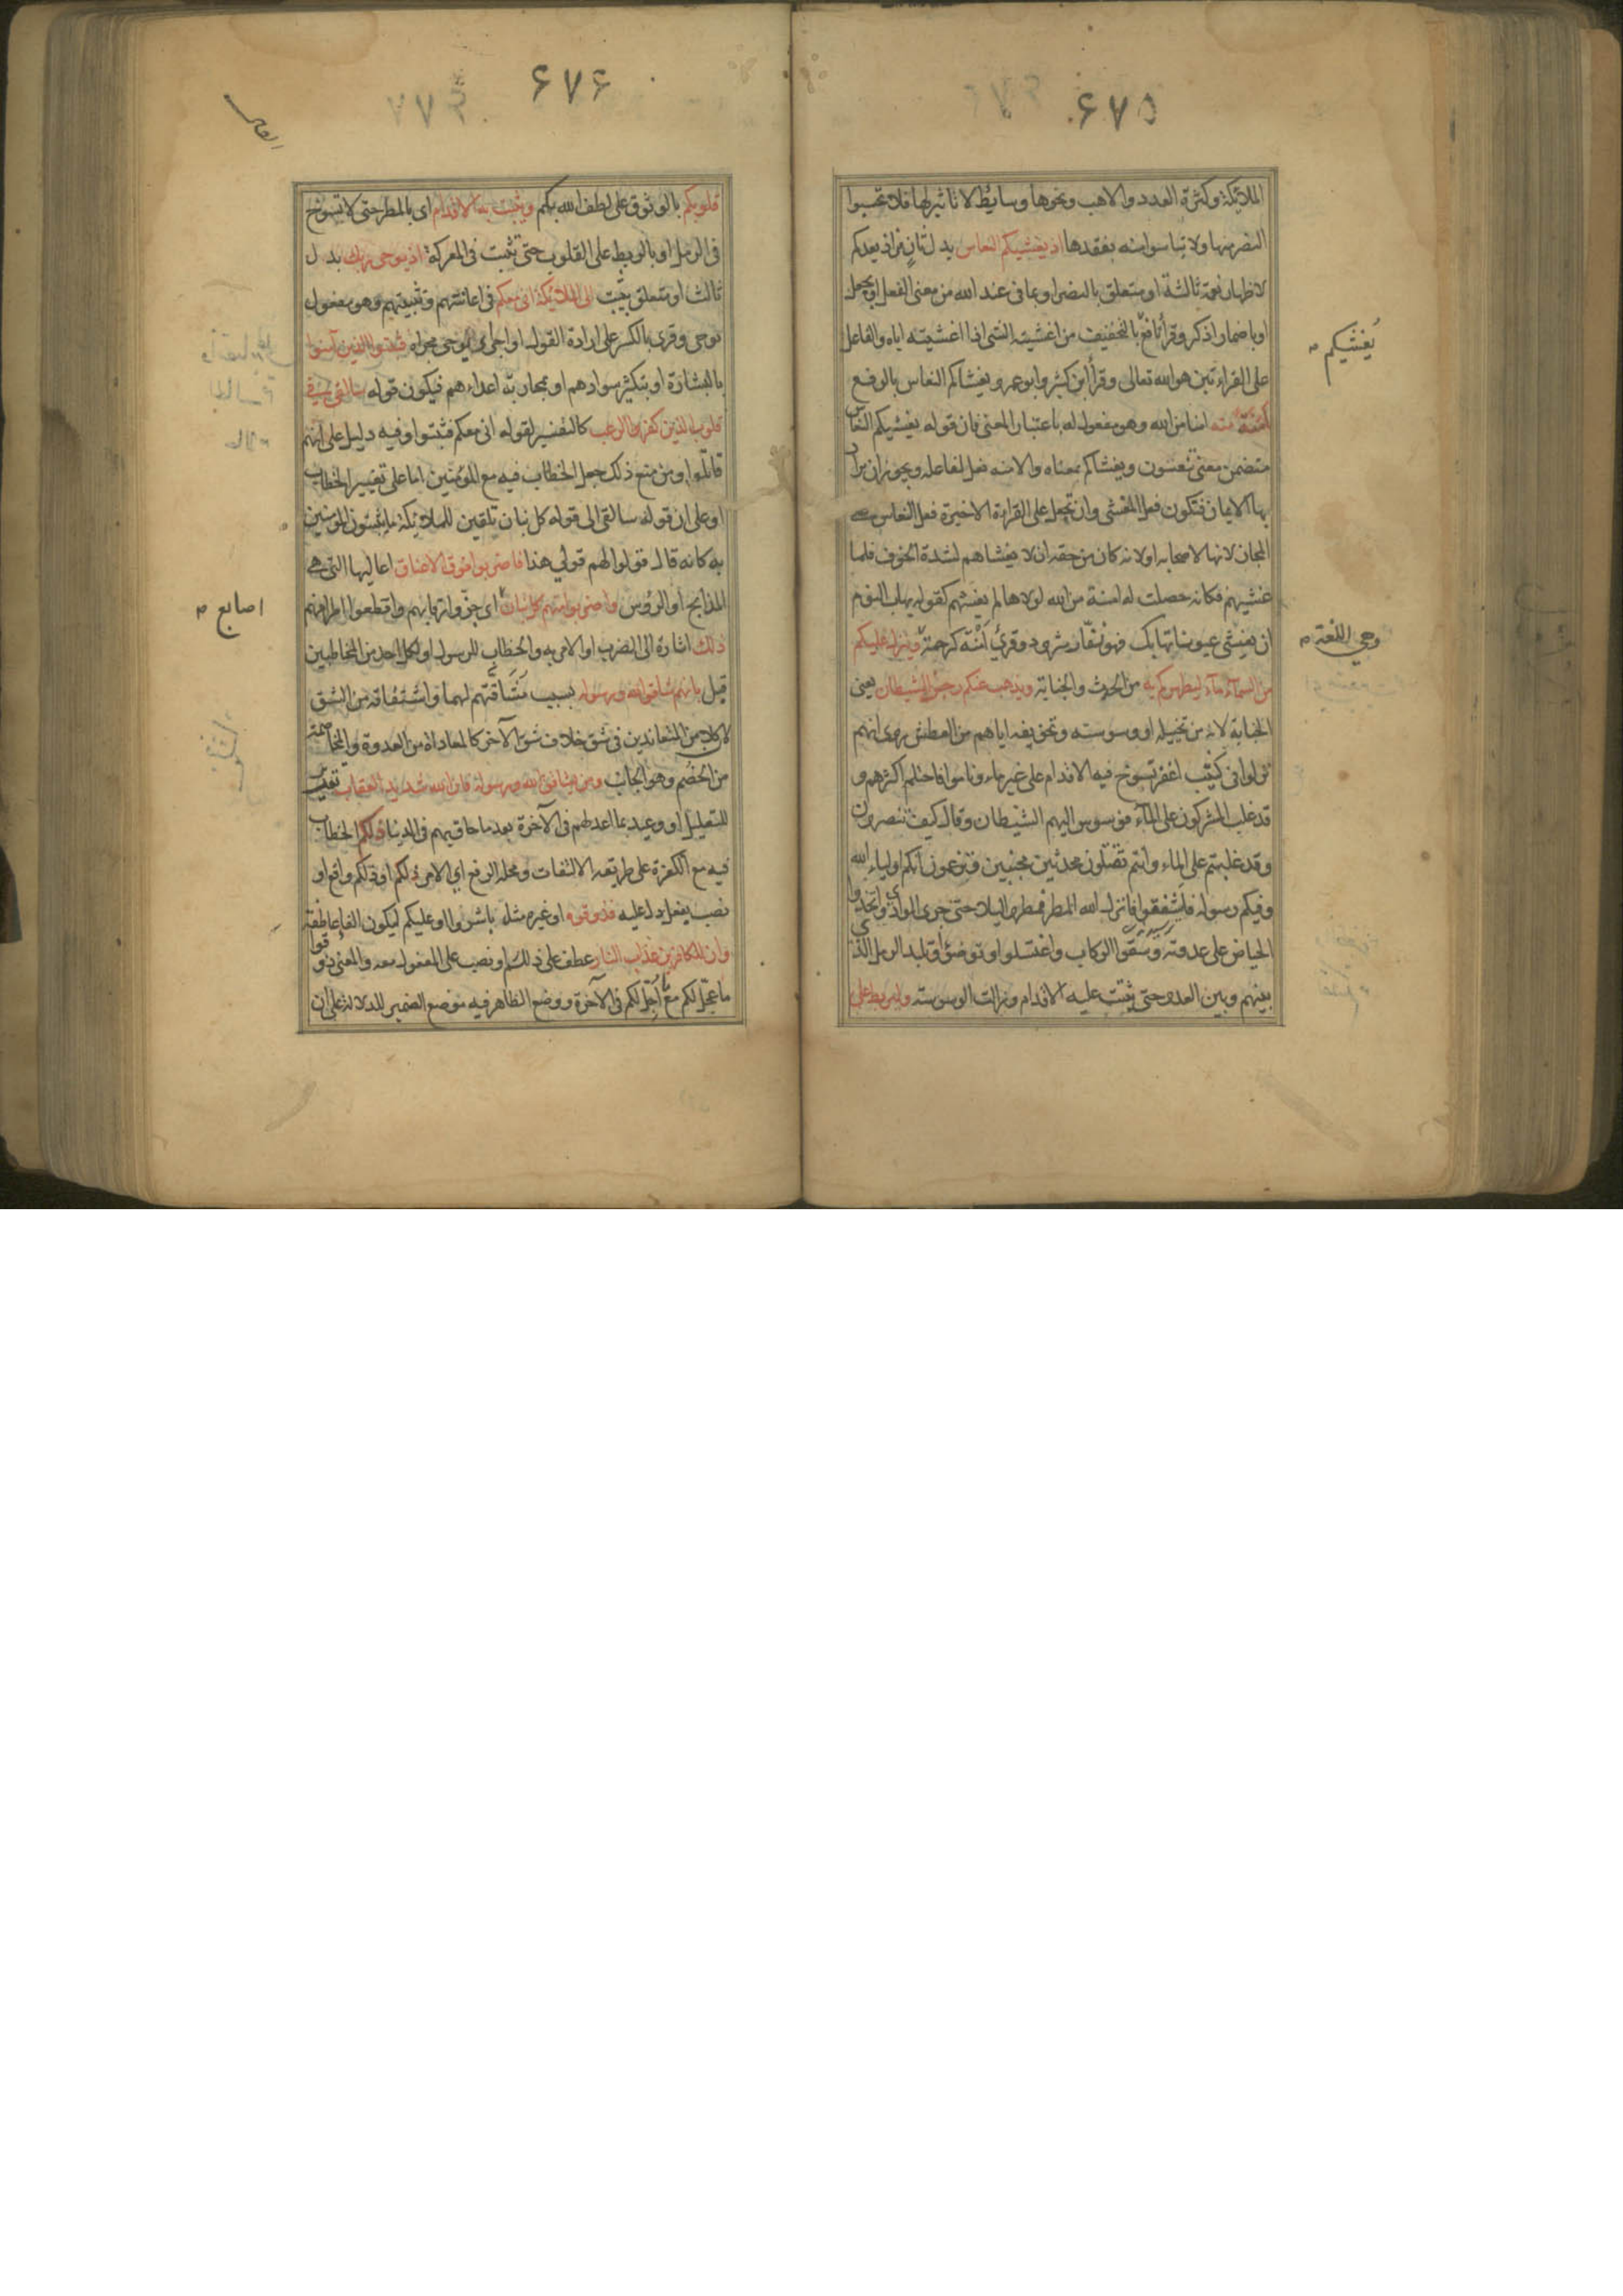 ۶۷۵
الملائكة وكثرة العدد والاهب ونحوها وسايط لا تاثير لها فلا تحسبوا
النصر منها ولا تياسوا منه بفقدها اذ يغشيكم النعاس بدل ثان من اذ يعدكم
لاظهار نعمة ثالثة او متعلق بالنصر او بما في عند الله من معنى الفعل او بجعل
او باضمار اذكر وقرأ نافع بالتخفيف من اغشيته الشى اذا اغشيته اياه والفاعل
على القراءتين هو الله تعالى وقرأ ابن كثير وابو عمرو يغشاكم النعاس بالرفع
امنة منه امنا من الله وهو مفعول له باعتبار المعنى فان قوله يغشيكم النعاس
متضمن معنى تنعسون ويغشاكم بمعناه والامنة فعل لفاعله ويجوز ان يراد
بها الايمان فتكون فعل المغشى وان تجعل على القراءة الاخيرة فعل النعاس على
المجاز لانها لاصحابه او لانه كان من حقه ان لا يغشاهم لشدة الخوف فلما
غشيهم فكانه حصلت له امنة من الله لولاها لم يغشهم كقوله يهاب النوم
ان يغشى عيونا تهابك فهو نفار شرود وقرئ امنة كرحمة وينزل عليكم
من السماء ماء ليطهركم به من الحدث والجنابة ويذهب عنكم رجز الشيطان يعنى
الجنابة لانه من تخييله او وسوسته وتخويفه اياهم من العطش روى انهم
نزلوا في كثيب اعفر تسوخ فيه الاقدام على غير ماء وناموا فاحتلم اكثرهم و
قد غلب المشركون على الماء فوسوس اليهم الشيطان وقال كيف تنصرون
وقد غلبتم على الماء وانتم تصلون محدثين مجنبين وتزعمون انكم اولياء الله
وفيكم رسوله فاشفقوا فانزل الله المطر فمطروا ليلا حتى جرى الوادى واتخذوا
الحياض على عدوته وسقوا الركاب واغتسلوا وتوضؤا وتلبد الرمل الذى
بينهم وبين العدو حتى يثبت عليه الاقدام وزالت الوسوسة وليربط على
يغشيكم
وهي اللغة
۶۷۶
قلوبكم بالوثوق على لطف الله بكم ويثبت به الاقدام اى بالمطر حتى لا تسوخ
فى الرمل او بالربط على القلوب حتى تثبت فى المعركة اذ يوحى ربك بدل
ثالث او متعلق يثبت الى الملائكة انى معكم فى اعانتهم وتثبيتهم وهو مفعول
يوحى وقرئ بالكسر على ارادة القول او اجراء الوحى مجراه فثبتوا الذين آمنوا
بالبشارة او بتكثير سوادهم او بمحاربة اعداءهم فيكون قوله سالقى فى
قلوب الذين كفروا الرعب كالتفسير لقوله انى معكم فثبتوا وفيه دليل على انهم
قاتلوا ومن منع ذلك جعل الخطاب فيه مع المؤمنين اما على تغيير الخطاب
او على ان قوله سالقى الى قوله كل بنان تلقين للملائكة ما يثبتون المؤمنين
به كانه قال قولوا لهم قولي هذا فاضربوا فوق الاعناق اعاليها التى هى
المذابح او الرؤس واضربوا منهم كل بنان اى جزوا رقابهم واقطعوا اطرافهم
ذلك اشارة الى الضرب او الامر به والخطاب للرسول او لكل احد من المخاطبين
قبل بانهم شاقوا الله ورسوله بسبب مشاقتهم لهما واشتقاقه من الشق
لان كلا من المتعاندين فى شق خلاف شق الآخر كالمعاداة من العدوة والمخاصمة
من الخصم وهو الجانب ومن يشاقق الله ورسوله فان الله شديد العقاب تقرير
للتعليل او وعيد بما اعد لهم فى الآخرة بعد ما حاق بهم فى الدنيا ذلكم الخطاب
فيه مع الكفرة على طريقة الالتفات ومحله الرفع اى الامر ذلكم او ذلكم واقع او
نصب بفعل دل عليه فذوقوه او غيره مثل باشروا او عليكم ليكون الفاء عاطفة
وان للكافرين عذاب النار عطف على ذلكم او نصب على المفعول معه والمعنى ذوقوا
ما عجل لكم مع ما اجل لكم فى الآخرة ووضع الظاهر فيه موضع الضمير للدلالة على ان
اصابع